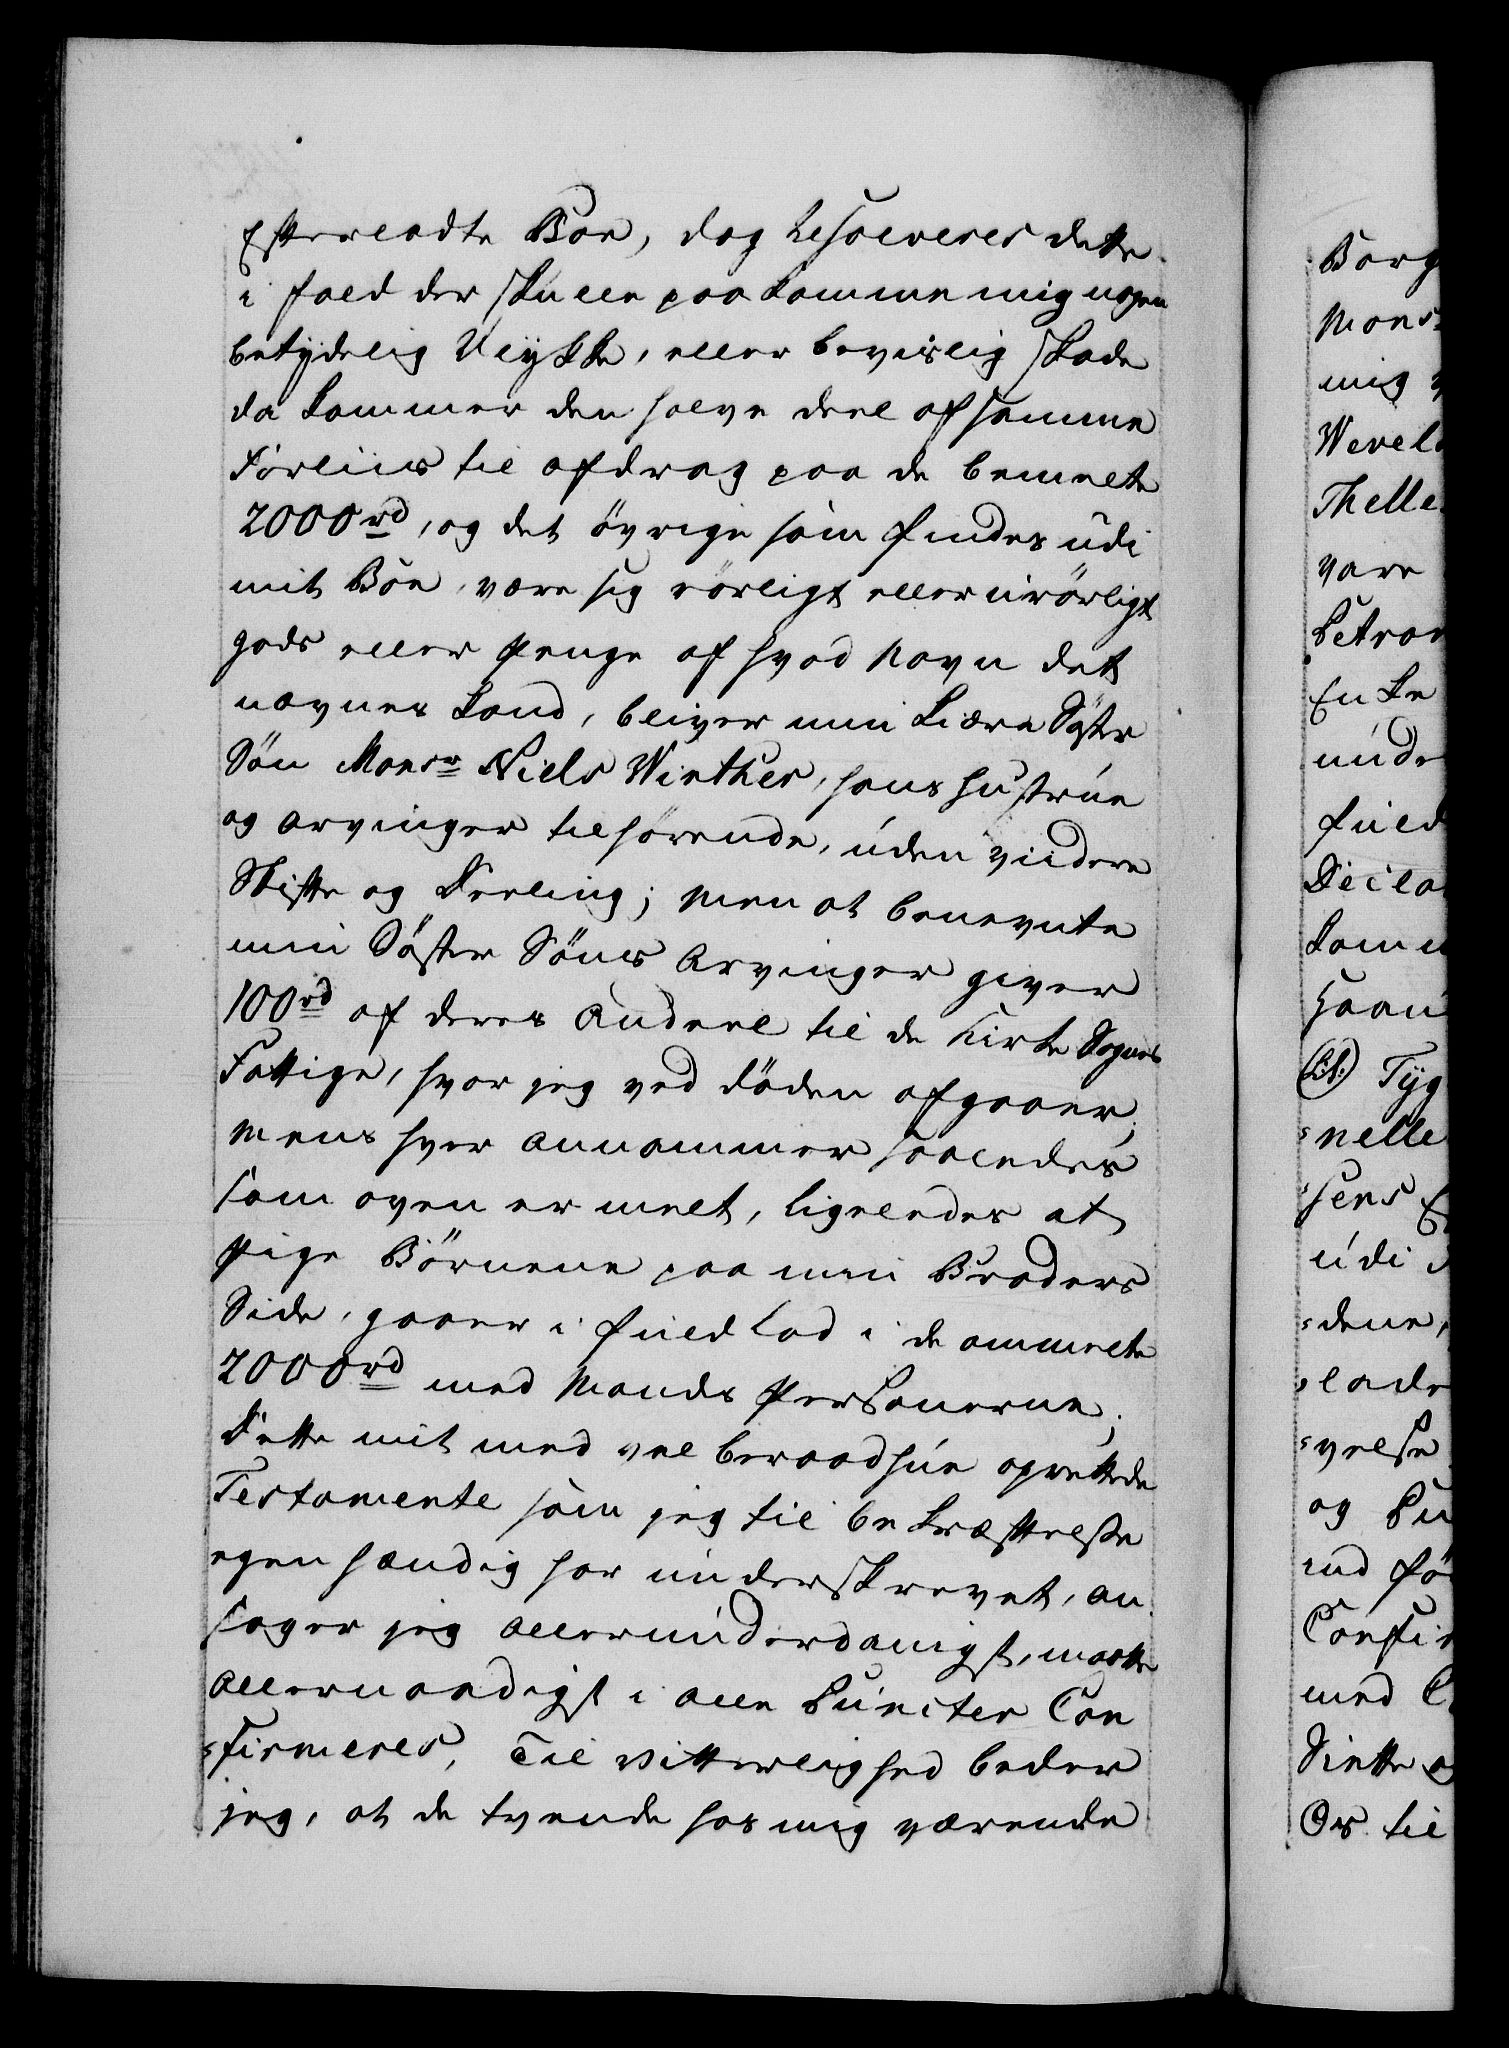 Efterladte Boe, dog Resolveres dette
i fald der skulle paakomme mig nogen
betydelig Ulykke, eller bevislig skade
da kommer den halve deel af samme
Forliis til afdrag paa de bemelte
2000rd, og det övrige som findes udi
mit Boe, være sig rörligt eller urörligt
gods eller Penge af hvad Navn det
nævnes kand, bliver min kiære Söster
Sön Monsr Niels Winther, hans Hustrue
og Arvinger tilhörende, uden viidere
Skifte og Deeling; men at benevnte
min Söster Söns Arvinger giver
100rd af deres Andeel til de Kirke Sogns
Fattige, hvor jeg ved Döden afgaaer;
mens hver annammer saaledes
som oven er melt, ligeledes at
Pige Börnene paa min Broders
Side, gaaer i fuld Lod i de ommelte
2000rd med Mands Personerne;
Dette mit med vel beraad hue oprettede
Testamente som jeg til bekræftelse
egenhændig har underskrevet, an
søger jeg allerunderdanigst, maatte
allernaadigst i alle Puncter Con
firmeres, Til Vitterlighed beder
jeg, at de tvende hos mig værende
Borg
Mons
mig
Wevel
Thelle
være
Petron
Enke
unde
fuld
Decla
komm
Haan
(LS.) Tyg
nelle
sens
udi
dene,
lade
velse
og Pu
ind fö
Confir
med
Dette
Os til